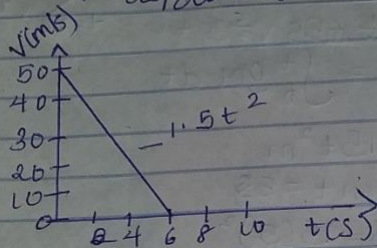 V(m/s)
50
40
30
20
10
0
-1.5t²
2 4 6 8 10 t(s)